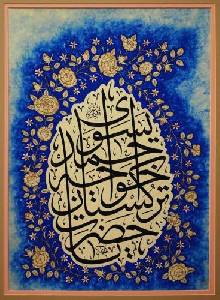 حضرت
تركستان
خواجه
احمد
يسوى